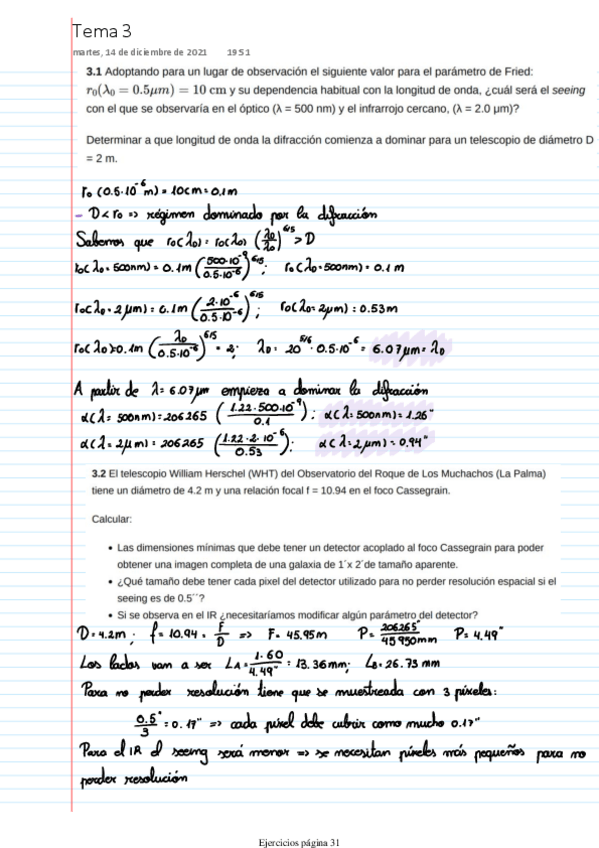 Tema 3
martes, 14 de diciembre de 2021 19:51
3.1 Adoptando para un lugar de observación el siguiente valor para el parámetro de Fried:
r₀(λ₀ = 0.5μm) = 10 cm y su dependencia habitual con la longitud de onda, ¿cuál será el seeing
con el que se observaría en el óptico (λ = 500 nm) y el infrarrojo cercano, (λ = 2.0 μm)?
Determinar a que longitud de onda la difracción comienza a dominar para un telescopio de diámetro D
= 2 m.
r₀(0.5·10⁻⁶m) = 10cm = 0.1m
- D<r₀ => régimen dominado por la difracción
Sabemos que r₀(λ₀) = r₀(λ₀) (λ₀/λ₀)^6/5 > D
r₀(λ₀=500nm) = 0.1m (500·10⁻⁹/0.5·10⁻⁶)^6/5; r₀(λ₀=500nm) = 0.1m
r₀(λ₀=2μm) = 0.1m (2·10⁻⁶/0.5·10⁻⁶)^6/5; r₀(λ₀=2μm) = 0.53m
r₀(λ₀)=0.1m (λ₀/0.5·10⁻⁶)^6/5 = 2; λ₀ = 20^5/6 · 0.5·10⁻⁶ = 6.07μm = λ₀
A partir de λ=6.07μm empieza a dominar la difracción
α(λ=500nm)=206265 (1.22·500·10⁻⁹/0.1); α(λ=500nm)=1.26"
α(λ=2μm)=206265 (1.22·2·10⁻⁶/0.53); α(λ=2μm)=0.94"
3.2 El telescopio William Herschel (WHT) del Observatorio del Roque de Los Muchachos (La Palma)
tiene un diámetro de 4.2 m y una relación focal f = 10.94 en el foco Cassegrain.
Calcular:
• Las dimensiones mínimas que debe tener un detector acoplado al foco Cassegrain para poder
obtener una imagen completa de una galaxia de 1´x 2´de tamaño aparente.
• ¿Qué tamaño debe tener cada pixel del detector utilizado para no perder resolución espacial si el
seeing es de 0.5´´?
• Si se observa en el IR ¿necesitaríamos modificar algún parámetro del detector?
D=4.2m; f=10.94 = F/D => F=45.95m P=206265"/45950mm P=4.49"
Los lados van a ser L_A=1·60/4.49" = 13.36mm; L_B=26.73 mm
Para no perder resolución tiene que se muestreada con 3 píxeles:
0.5"/3 = 0.17" => cada píxel debe cubrir como mucho 0.17"
Para el IR el seeing será menor => se necesitan píxeles más pequeños para no
perder resolución
Ejercicios página 31